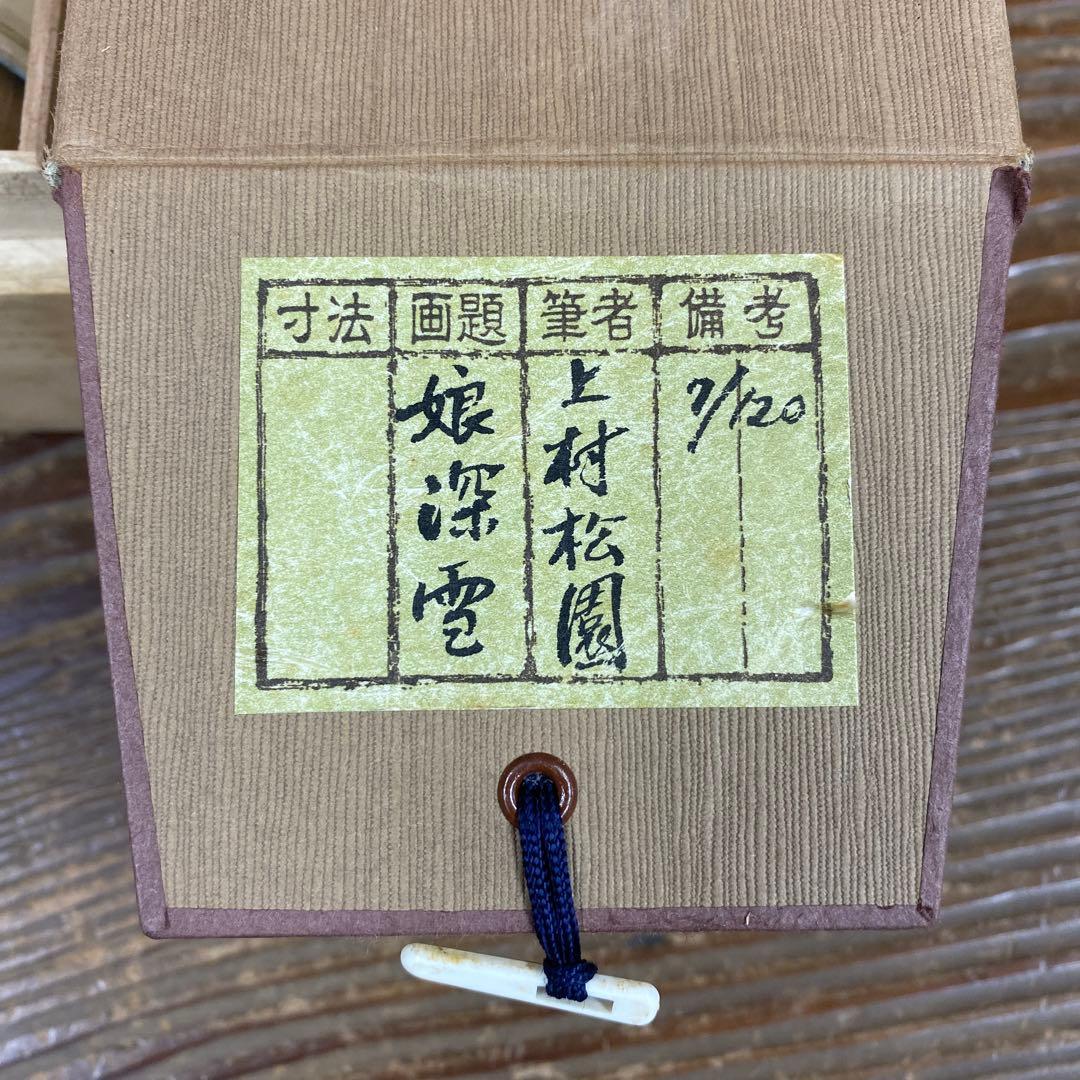 備考
7/120
筆者
上村松園
画題
娘深雪
寸法